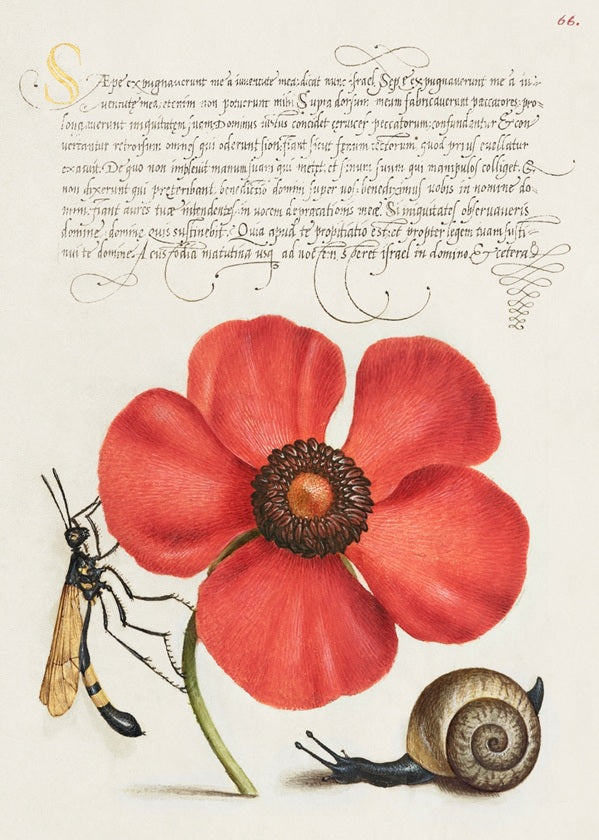 66.
Sæpe expugnaverunt me a iuventute mea: dicat nunc Israel. Sepe expugnaverunt me a iu-
ventute mea, etenim non potuerunt mihi. Supra dorsum meum fabricaverunt peccatores: pro-
longaverunt iniquitatem suam. Dominus iustus concidet cervices peccatorum: confundantur & con
vertantur retrorsum omnes qui oderunt sion. fiant sicut fenum tectorum, quod prius evellatur
exaruit. De quo non implevit manum suam qui metit: et sinum suum qui manipulos colliget. &
non dixerunt qui preteribant, benedictio domini super vos: benediximus vobis in nomine do-
mini. fiant aures tuæ intendentes: in vocem depracationis meæ. Si iniquitates observaveris
domine: domine quis sustinebit. Quia apud te propitiatio est: et propter legem tuam susti-
nui te domine. A custodia matutina usq ad noctem speret israel in domino. & cetera